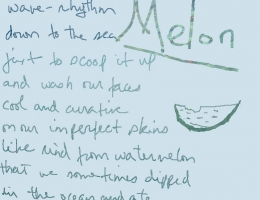 wave-rhythm
Melon
down to the sea
just to scoop it up
and wash our faces
cool and curative
on our imperfect skins
like rind from watermelon
that we sometimes dipped
in the ocean and ate